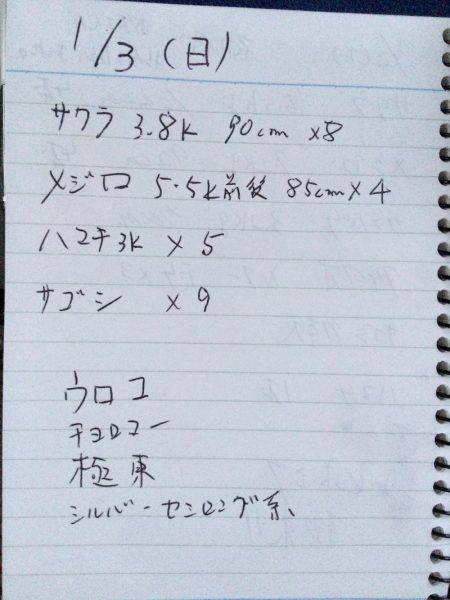 1/3 (日)
サワラ 3.8k 90cm x8
メジロ 5.5k前後 85cm x 4
ハマチ3k x 5
サゴシ x 9
ウロコ
チョロコー
極東
シルバー・セミロング系